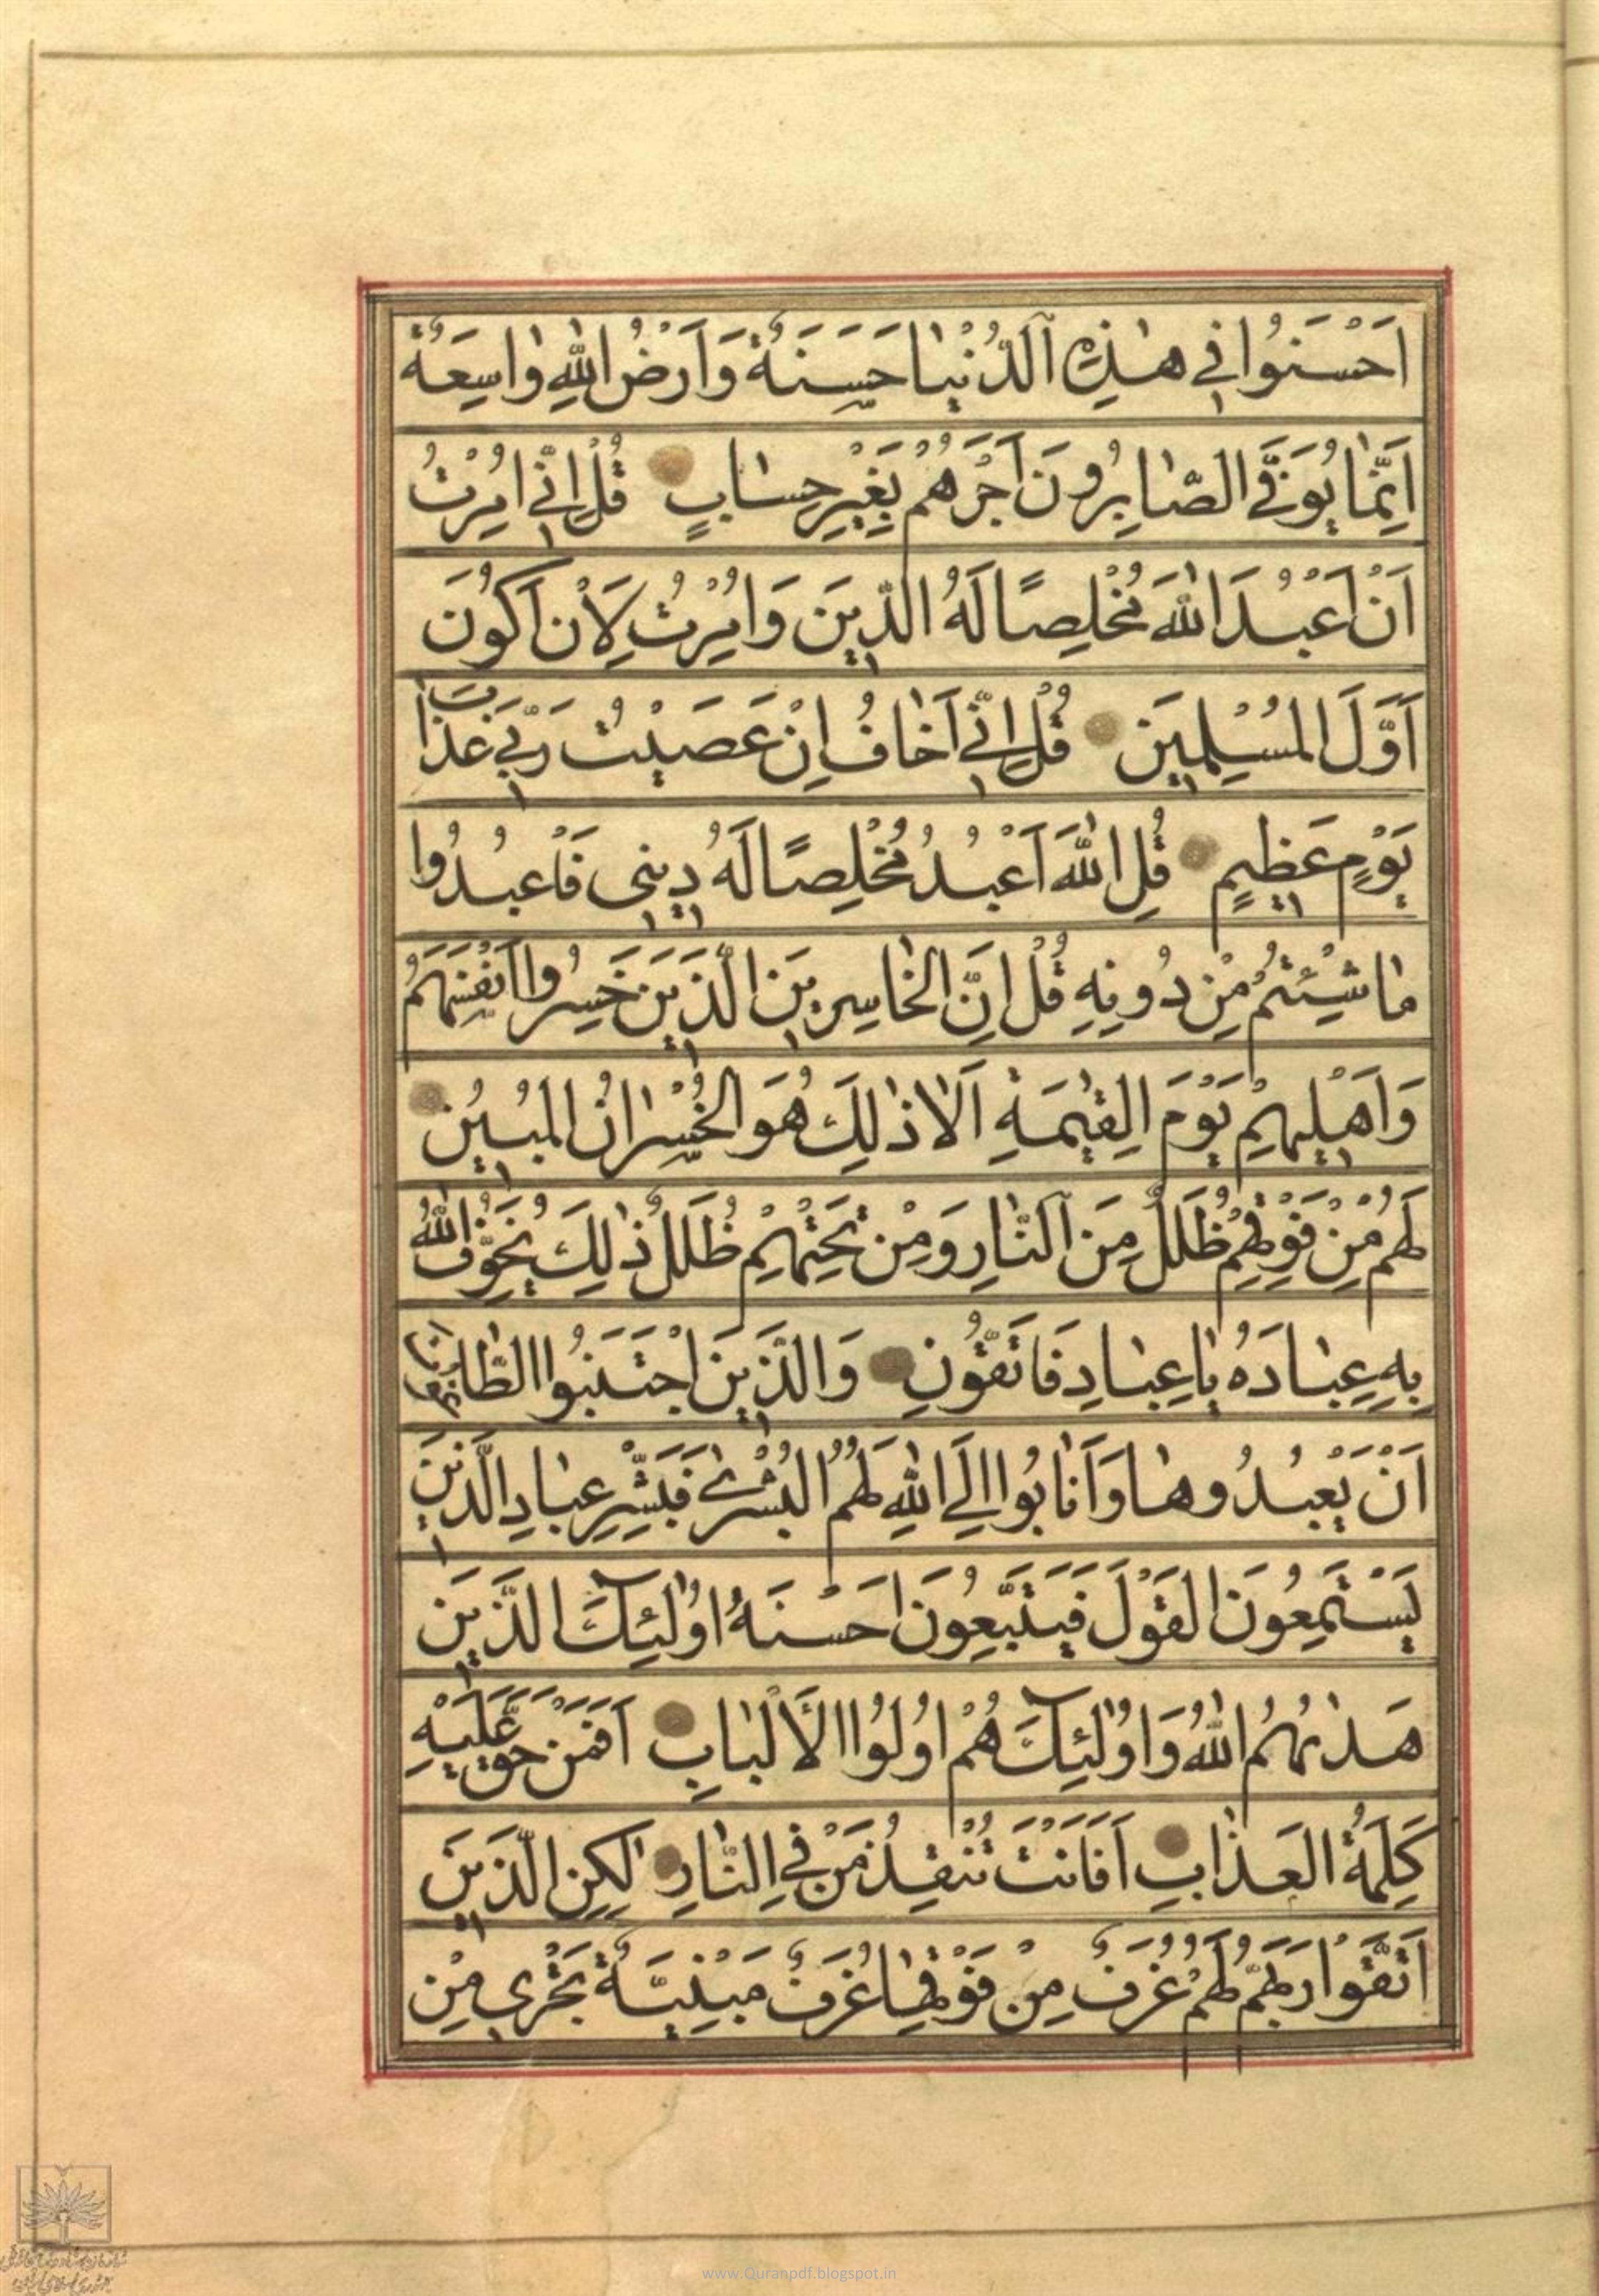 اَحْسَنُوا فِي هٰذِهِ الدُّنْيٰا حَسَنَةٌ وَاَرْضُ اللّٰهِ وٰاسِعَةٌ
اِنَّمٰا يُوَفَّى الصّٰابِرُونَ اَجْرَهُمْ بِغَيْرِ حِسٰابٍ قُلْ اِنِّي اُمِرْتُ
اَنْ اَعْبُدَ اللّٰهَ مُخْلِصًا لَهُ الدِّينَ وَاُمِرْتُ لِاَنْ اَكُونَ
اَوَّلَ الْمُسْلِمِينَ قُلْ اِنِّي اَخٰافُ اِنْ عَصَيْتُ رَبِّي عَذٰابَ
يَوْمٍ عَظِيمٍ قُلِ اللّٰهَ اَعْبُدُ مُخْلِصًا لَهُ دِينِي فَاعْبُدُوا
مٰا شِئْتُمْ مِنْ دُونِهِ قُلْ اِنَّ الْخٰاسِرِينَ الَّذِينَ خَسِرُوا اَنْفُسَهُمْ
وَاَهْلِيهِمْ يَوْمَ الْقِيٰمَةِ اَلَا ذٰلِكَ هُوَ الْخُسْرٰانُ الْمُبِينُ
لَهُمْ مِنْ فَوْقِهِمْ ظُلَلٌ مِنَ النّٰارِ وَمِنْ تَحْتِهِمْ ظُلَلٌ ذٰلِكَ يُخَوِّفُ اللّٰهُ
بِهِ عِبٰادَهُ يٰا عِبٰادِ فَاتَّقُونِ وَالَّذِينَ اجْتَنَبُوا الطّٰاغُوتَ
اَنْ يَعْبُدُوهٰا وَاَنٰابُوا اِلَى اللّٰهِ لَهُمُ الْبُشْرٰى فَبَشِّرْ عِبٰادِ الَّذِينَ
يَسْتَمِعُونَ الْقَوْلَ فَيَتَّبِعُونَ اَحْسَنَهُ اُولٰئِكَ الَّذِينَ
هَدٰيهُمُ اللّٰهُ وَاُولٰئِكَ هُمْ اُولُوا الْاَلْبٰابِ اَفَمَنْ حَقَّ عَلَيْهِ
كَلِمَةُ الْعَذٰابِ اَفَاَنْتَ تُنْقِذُ مَنْ فِي النّٰارِ لٰكِنِ الَّذِينَ
اتَّقَوْا رَبَّهُمْ لَهُمْ غُرَفٌ مِنْ فَوْقِهٰا غُرَفٌ مَبْنِيَّةٌ تَجْرِي مِنْ
www.Quranpdf.blogspot.in